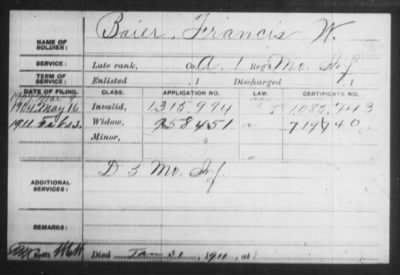 NAME OF SOLDIER: Baier, Francis W.
SERVICE: Late rank, Co. A, 1 Reg't Mo. Inf
TERM OF SERVICE: Enlisted , 1 Discharged , 1
DATE OF FILING. CLASS. APPLICATION NO. LAW. CERTIFICATE NO.
1904 May 16 Invalid, 1.315.994 1083.943
1911 Feb 23. Widow, 958451 719940
Minor,
ADDITIONAL SERVICES: D 3 Mo. Inf.
REMARKS:
Died Jan 31, 1911, at